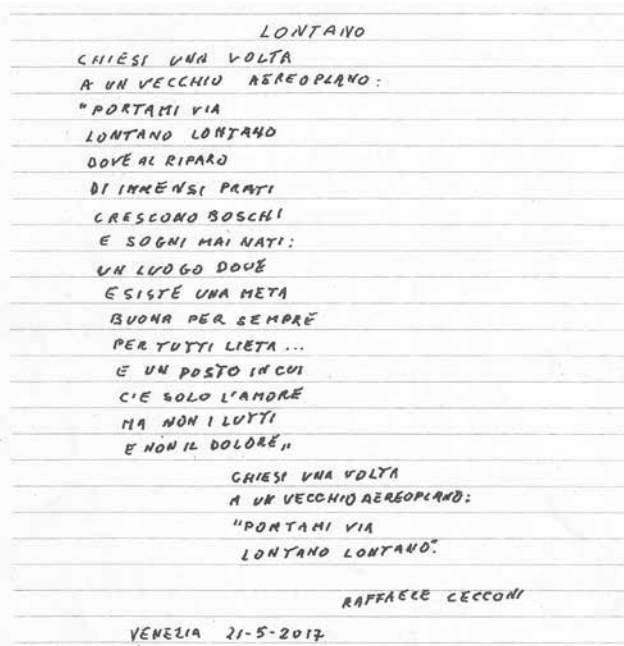 LONTANO
CHIESI UNA VOLTA
A UN VECCHIO AEREOPLANO:
"PORTAMI VIA
LONTANO LONTANO
DOVE AL RIPARO
DI IMMENSI PRATI
CRESCONO BOSCHI
E SOGNI MAI NATI:
UN LUOGO DOVE
ESISTE UNA META
BUONA PER SEMPRE
PER TUTTI LIETA...
E UN POSTO IN CUI
C'E SOLO L'AMORE
MA NON I LUTTI
E NON IL DOLORE„
CHIESI UNA VOLTA
A UN VECCHIO AEREOPLANO:
"PORTAMI VIA
LONTANO LONTANO".
RAFFAELE CECCONI
VENEZIA 21-5-2017